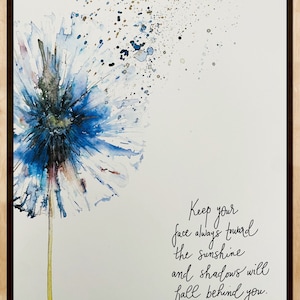 Keep your
face always toward
the sunshine
and shadows will
fall behind you.